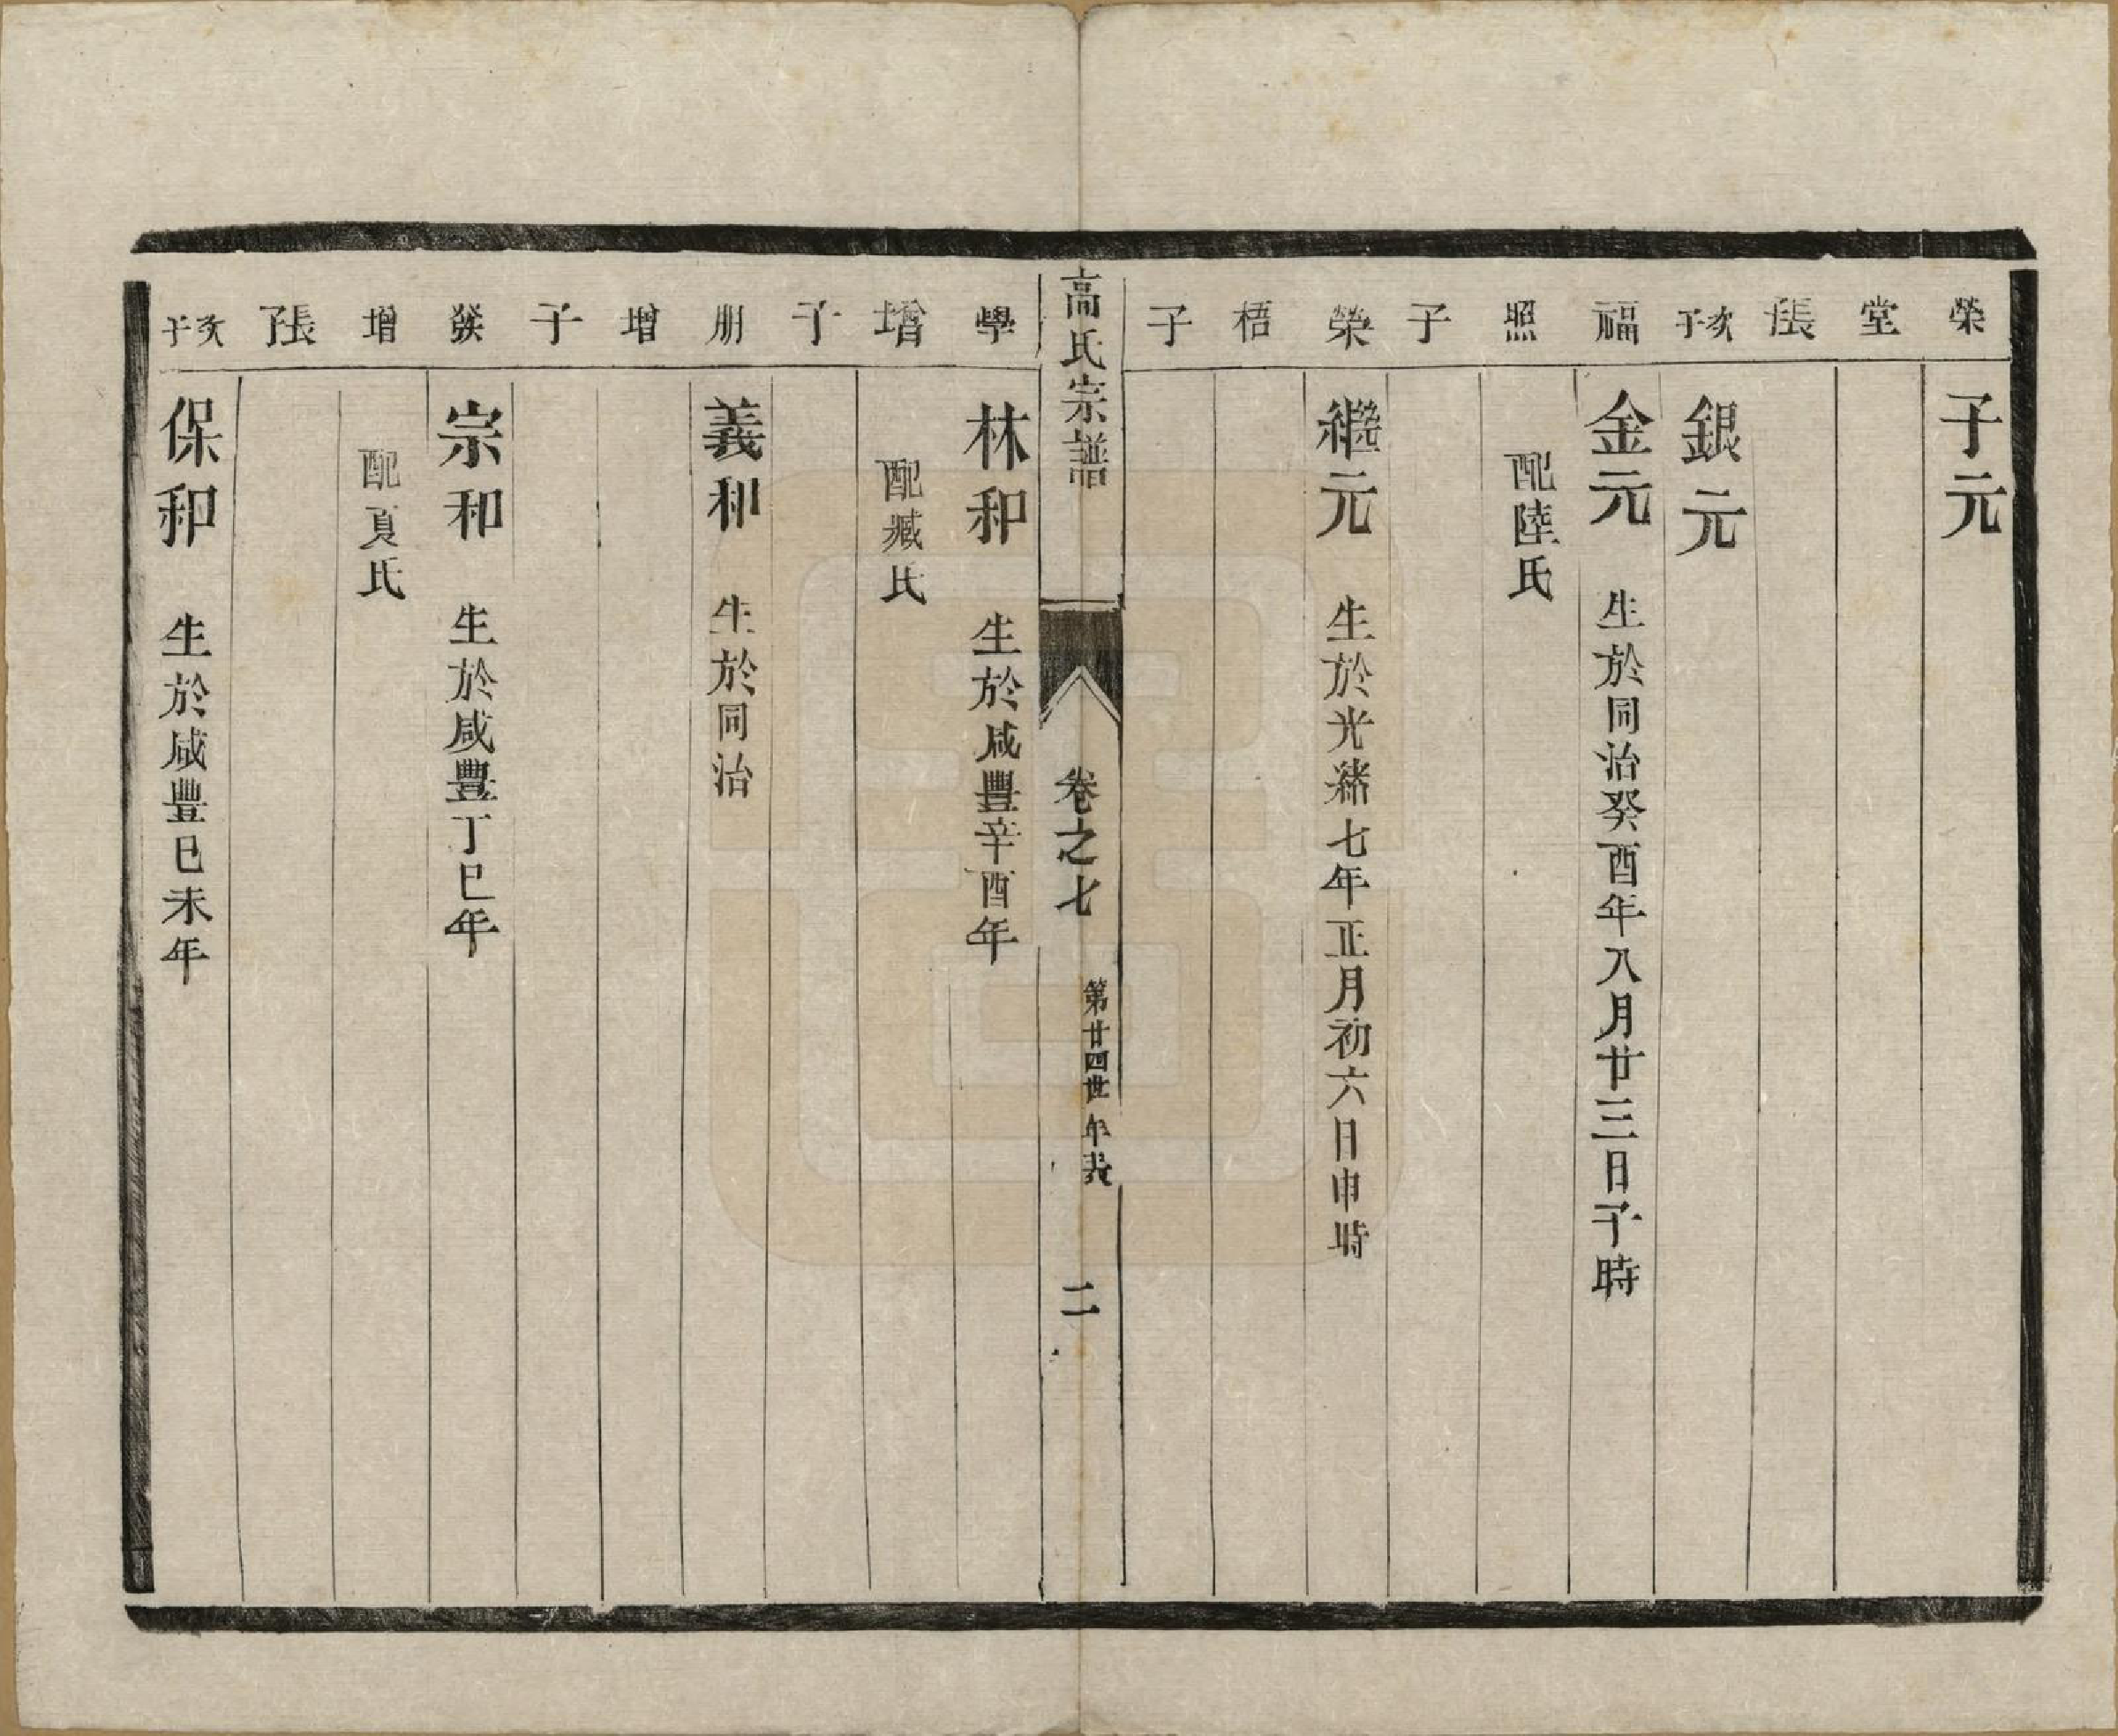 榮 子元
堂
長子
次子 銀元
福 金元 生於同治癸酉年八月廿三日子時
照 配陸氏
子
榮 繼元 生於光緒七年正月初六日申時
梧
子
高氏宗譜 卷之七 第廿四世年表 二
學 林和 生於咸豐辛酉年
增 配臧氏
子
朋 義和 生於同治
增
子
發 宗和 生於咸豐丁巳年
增 配夏氏
長子
次子 保和 生於咸豐己未年